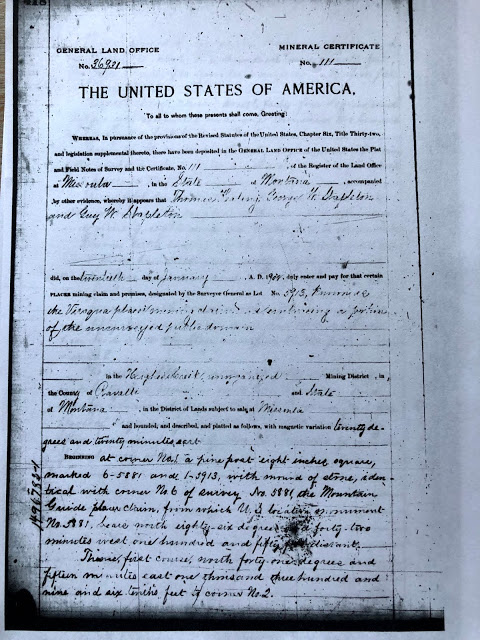 GENERAL LAND OFFICE
No. 36981
MINERAL CERTIFICATE
No. 111
THE UNITED STATES OF AMERICA,
To all to whom these presents shall come, Greeting:
WHEREAS, In pursuance of the provisions of the Revised Statutes of the United States, Chapter Six, Title Thirty-two,
and legislation supplemental thereto, there have been deposited in the GENERAL LAND OFFICE of the United States the Plat
and Field Notes of Survey and the Certificate, No. 111 of the Register of the Land Office
at Missoula, in the State of Montana, accompanied
by other evidence, whereby it appears that Thomas George W. Stapleton
and Guy W. Stapleton
did, on the twentieth day of January A. D. duly enter and pay for that certain
PLACER mining claim and premises, designated by the Surveyor General as Lot No. 5913,
the placer mining claim embracing a portion
of the unsurveyed public domain
in the unorganized Mining District, in
the County of Ravalli and State
of Montana, in the District of Lands subject to sale at Missoula
and bounded, and described, and platted as follows, with magnetic variation twenty de-
grees and twenty minutes east
BEGINNING at corner No. 1 a pine post eight inches square,
marked 6-5881 and 1-5913, with mound of stone, iden-
tical with corner No. 6 of survey No. 5881, the Mountain
Guide placer claim, from which U. S. location monument
No. 5881, bears north eighty-six degrees and forty-two
minutes west one hundred and fifty feet distant.
Thence, first course, north forty-one degrees and
fifteen minutes east one thousand three hundred and
nine and six tenths feet to corner No. 2.